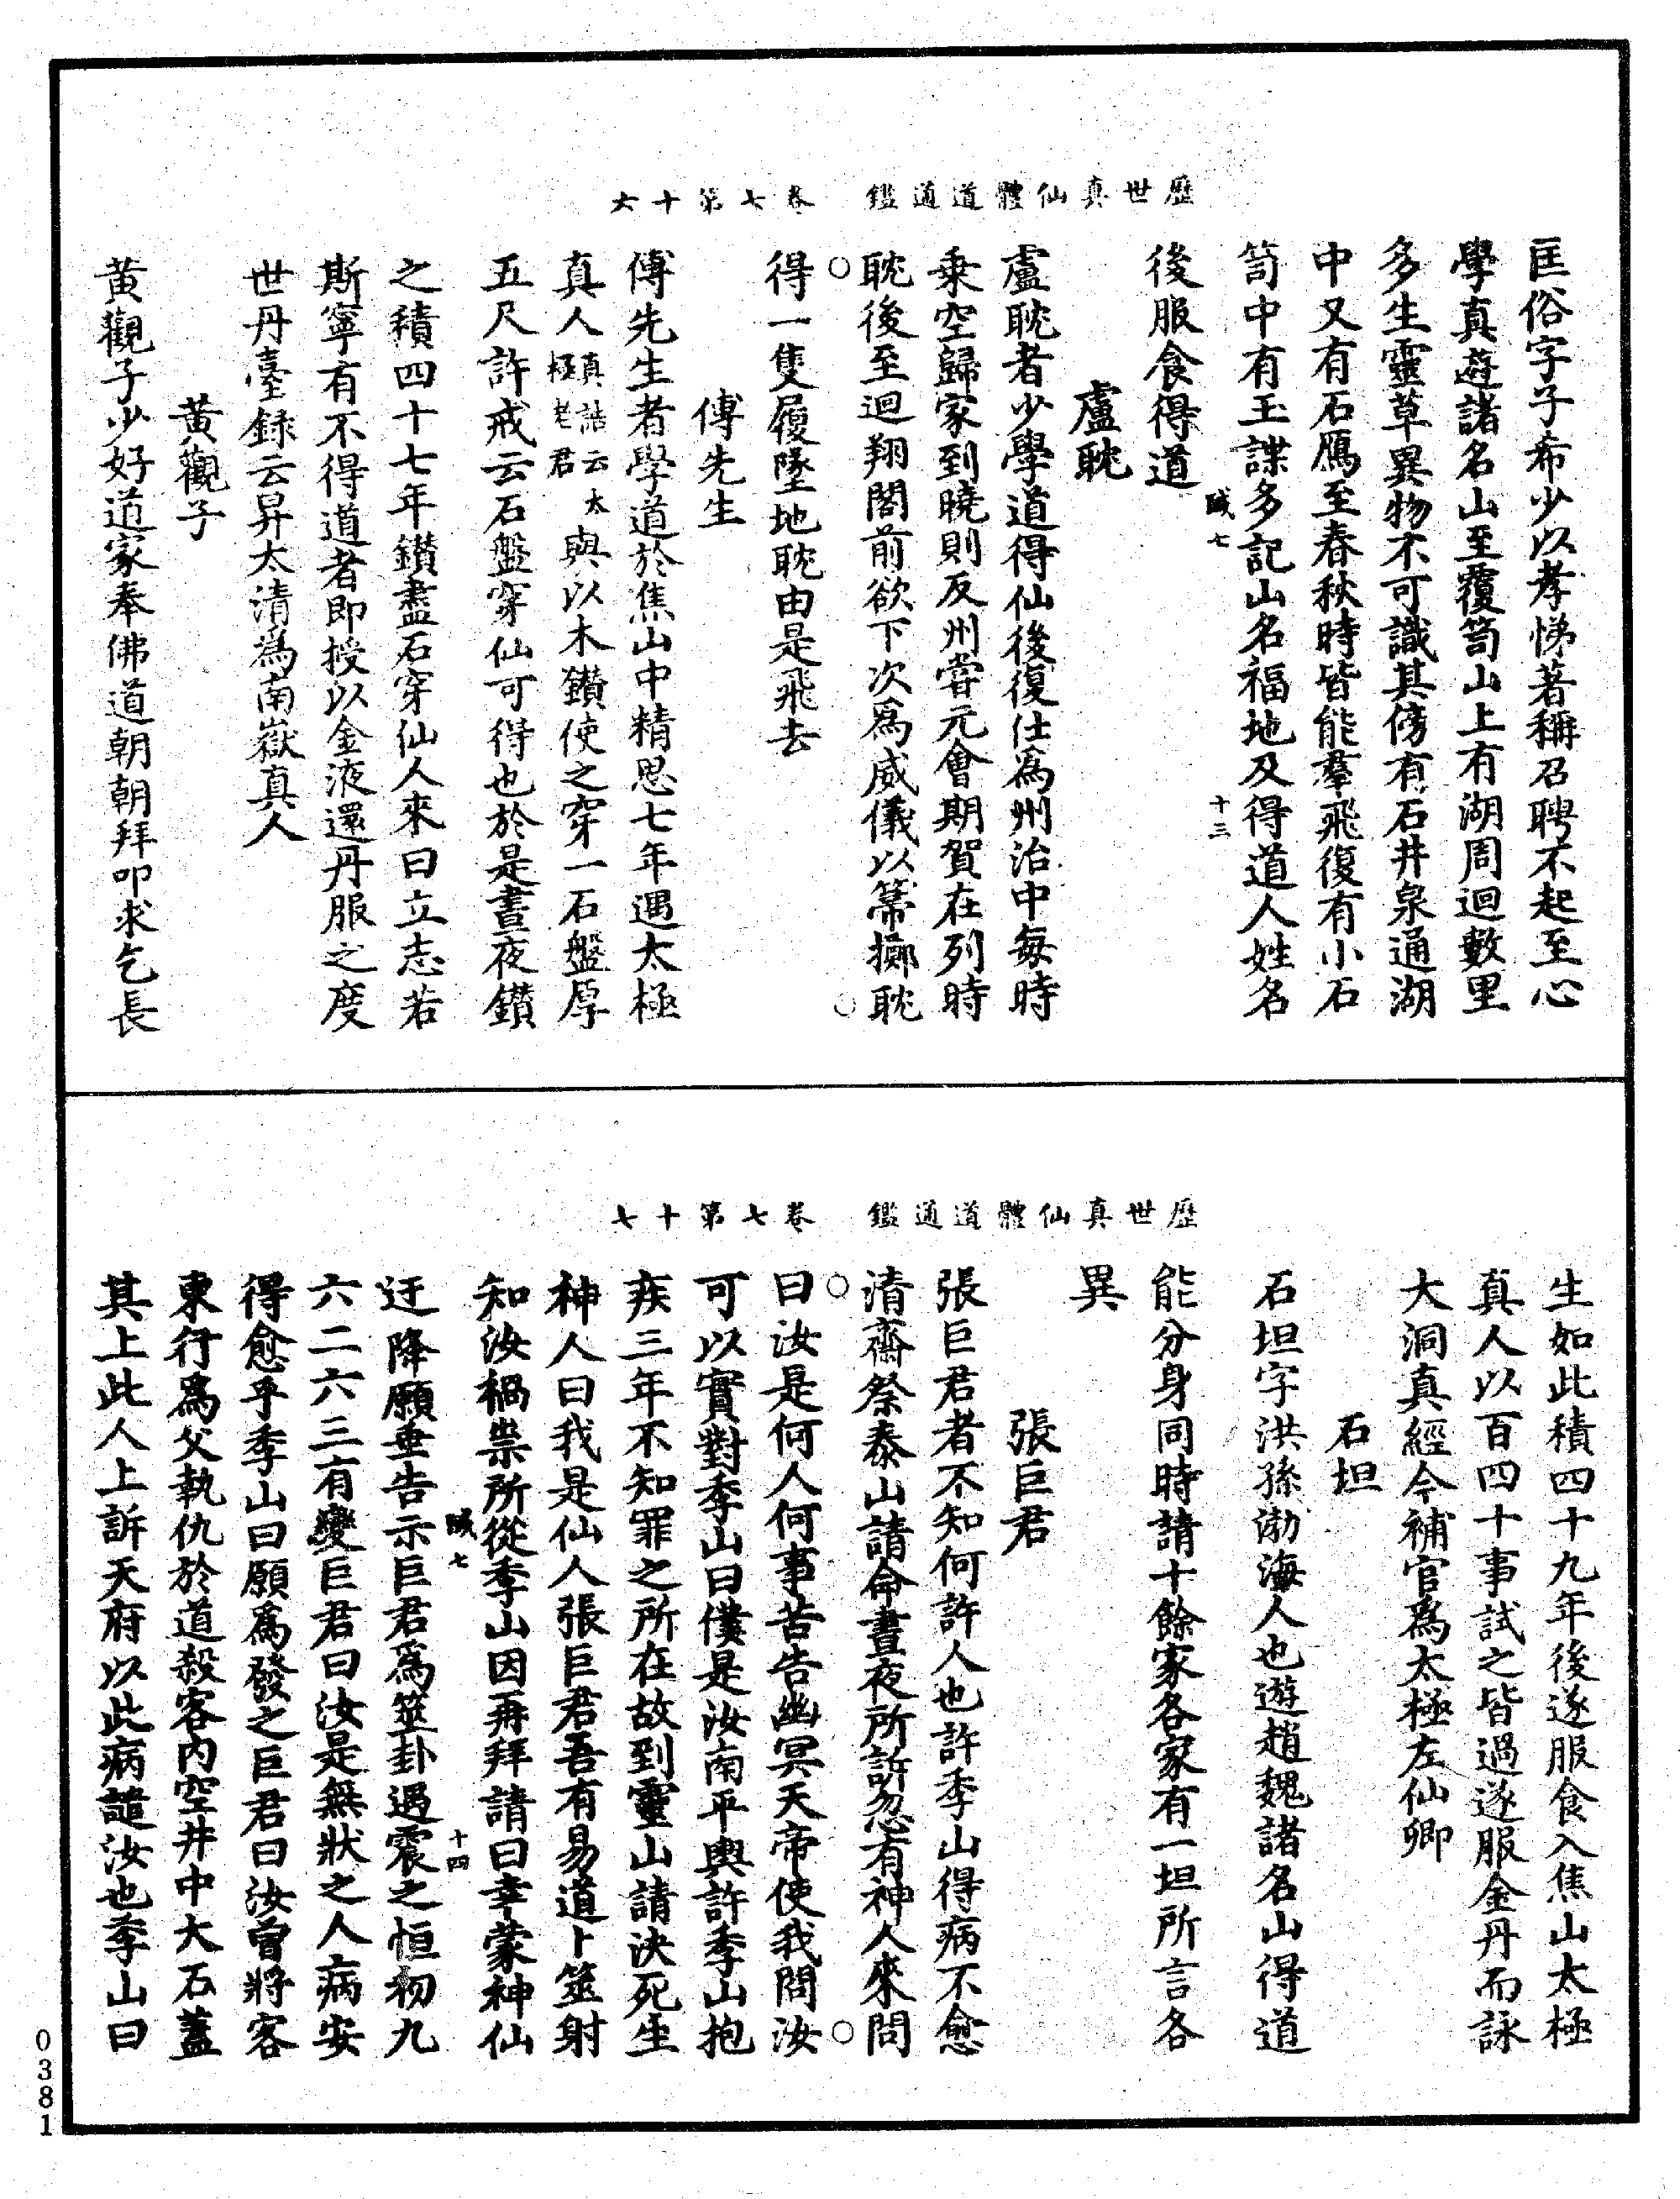 歷世真仙體道通鑑　卷七第十六
匡俗字子希少以孝悌著稱召聘不起至心
學真遊諸名山至覆笥山上有湖周迴數里
多生靈草異物不可識其傍有石井泉通湖
中又有石鴈至春秋時皆能羣飛復有小石
笥中有玉諜多記山名福地及得道人姓名
鹹七　十三
後服食得道
盧耽
盧耽者少學道得仙後復仕為州治中每時
乗空歸家到曉則反州嘗元會期賀在列時
耽後至迴翔閣前欲下次為威儀以箒擲耽
得一隻履墜地耽由是飛去
傅先生
傅先生者學道於焦山中精思七年遇太極
真人真誥云太極老君與以木鑽使之穿一石盤厚
五尺許戒云石盤穿仙可得也於是晝夜鑽
之積四十七年鑽盡石穿仙人來曰立志若
斯寧有不得道者即授以金液還丹服之度
世丹臺録云昇太清為南嶽真人
黃觀子
黃觀子少好道家奉佛道朝朝拜叩求乞長
歷世真仙體道通鑑　卷七第十七
生如此積四十九年後遂服食入焦山太極
真人以百四十事試之皆過遂服金丹而詠
大洞真經今補官為太極左仙卿
石坦
石坦字洪孫渤海人也遊趙魏諸名山得道
能分身同時請十餘家各家有一坦所言各
異
張巨君
張巨君者不知何許人也許季山得病不愈
清齋祭泰山請命晝夜所訴忽有神人來問
曰汝是何人何事苦告幽冥天帝使我問汝
可以實對季山曰僕是汝南平輿許季山抱
疾三年不知罪之所在故到靈山請決死生
神人曰我是仙人張巨君吾有易道卜筮射
知汝禍祟所從季山因再拜請曰幸蒙神仙
鹹七　十四
迂降願垂告示巨君為筮卦遇震之恒初九
六二六三有變巨君曰汝是無狀之人病安
得愈乎季山曰願為發之巨君曰汝曾將客
東行為父執仇於道殺客內空井中大石蓋
其上此人上訴天府以此病譴汝也季山曰
0381